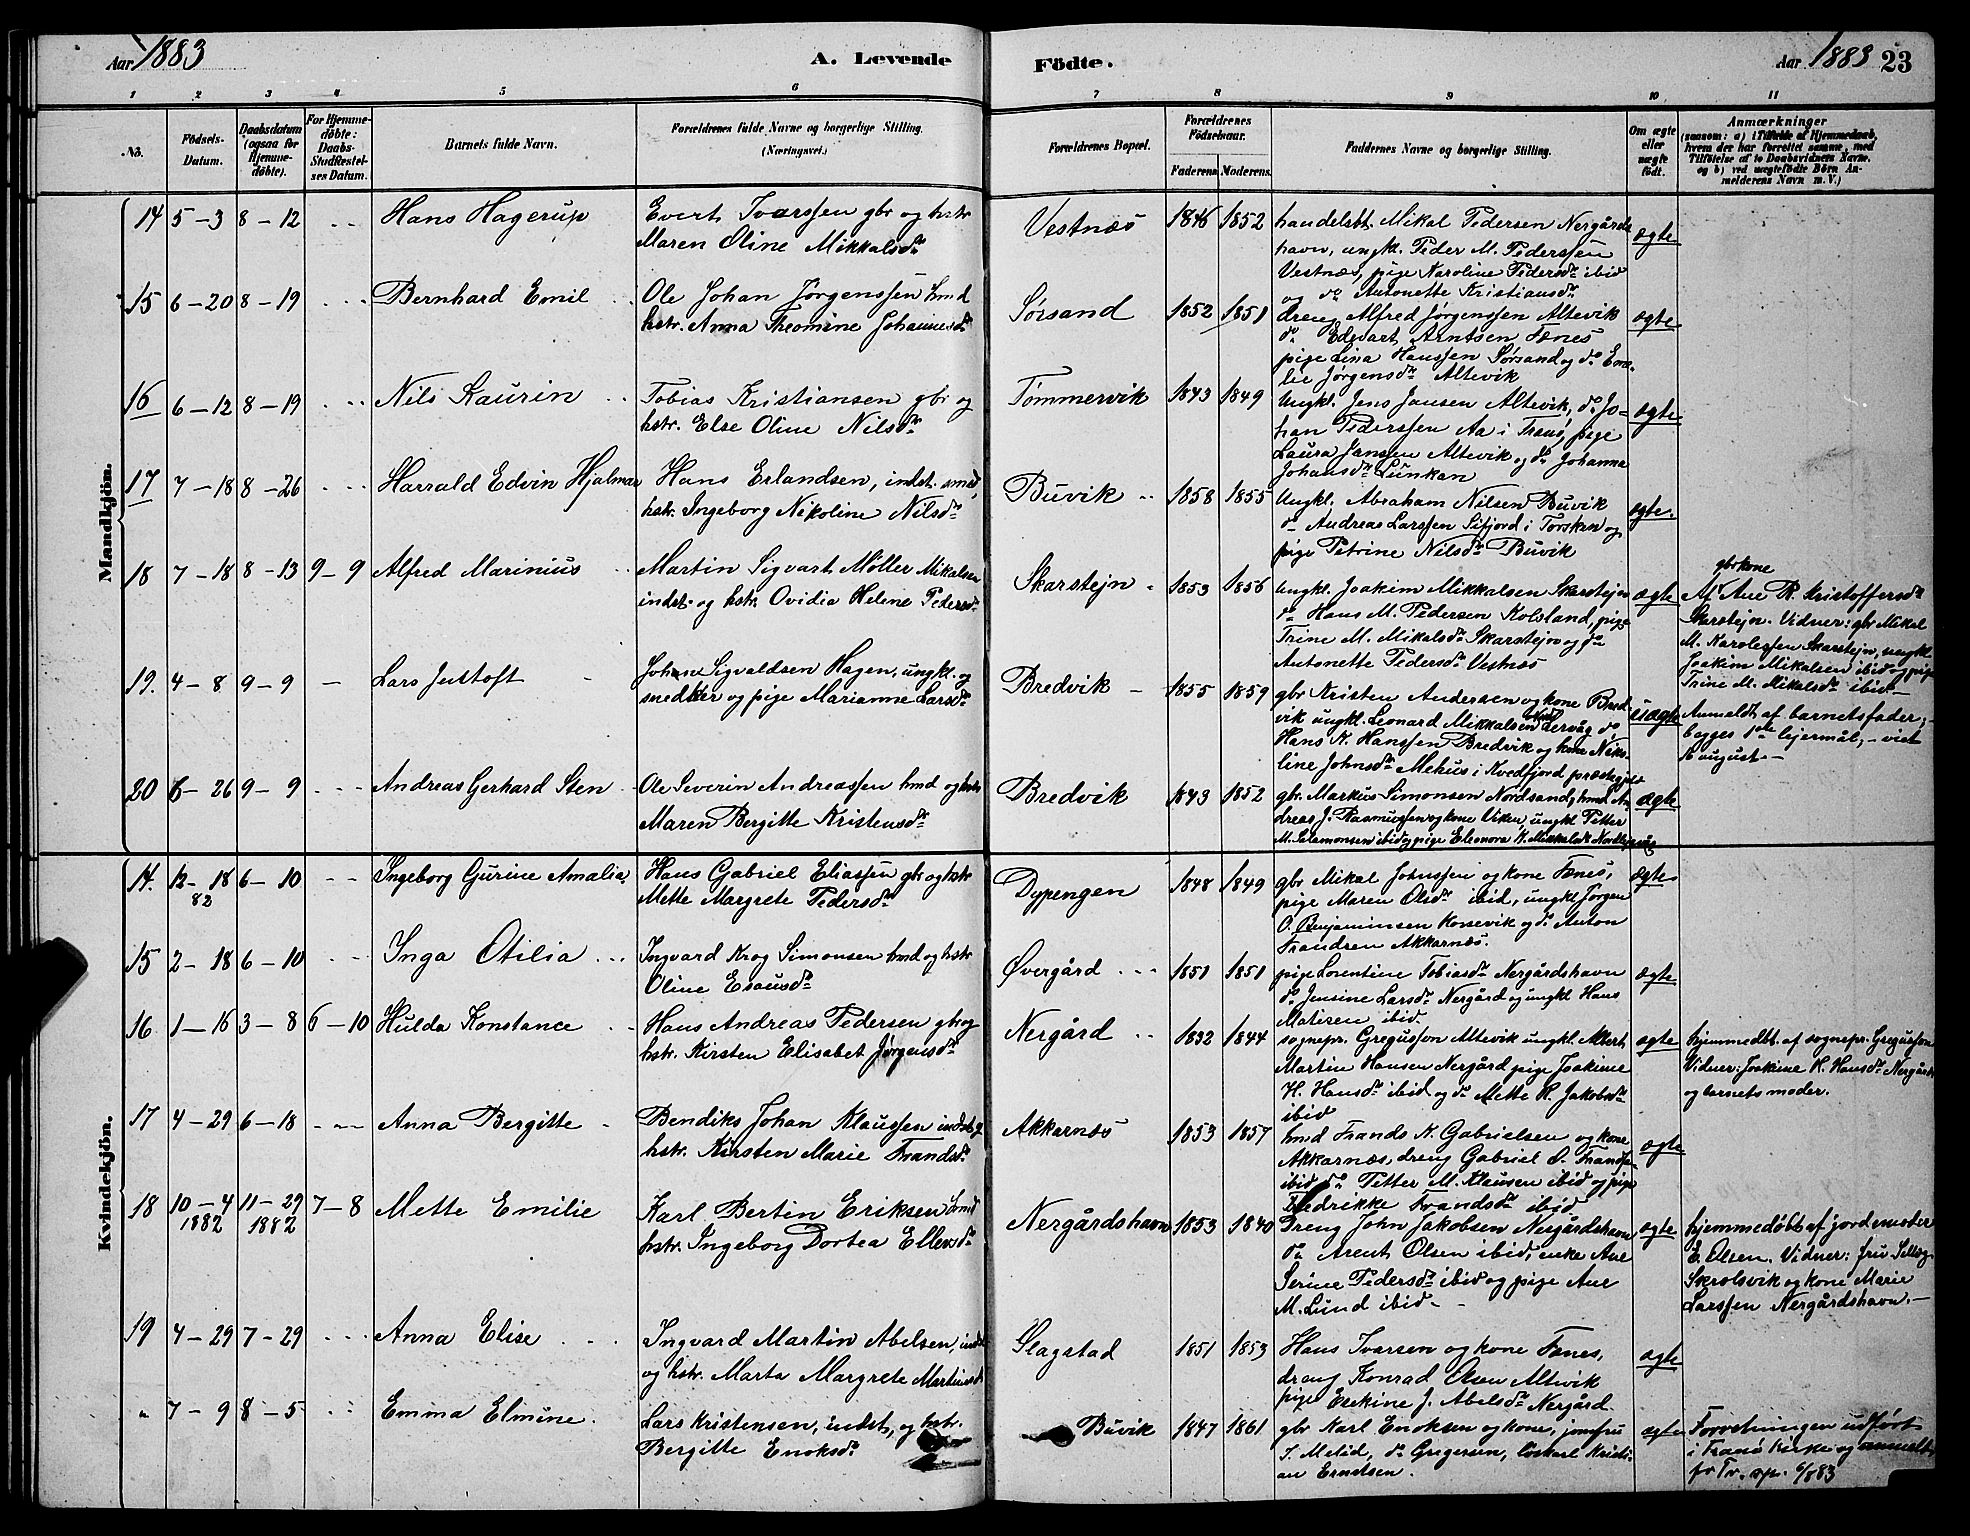 Aar 1883
A. Levende
Födte.
Aar 1883 23
1 2 3 4 5 6 7 8 9 10 11
No.
Födsels-
Datum.
Daabsdatum
(ogsaa for
Hjemme-
döbte).
For Hjemme-
döbte:
Daabs-
Stadfæstel-
ses Datum.
Barnets fulde Navn.
Forældrenes fulde Navne og borgerlige Stilling.
(Næringsvei.)
Forældrenes Bopæl.
Forældrenes
Födselsaar.
Faderens Moderens
Faddernes Navne og borgerlige Stilling.
Om ægte
eller
uægte
födt.
Anmærkninger
(saasom: a) i Tilfælde af Hjemmedaab,
hvem der har forrettet samme, med
Tilföielse af to Daabsvidners Navne.
og b) ved uægtefödte Börn An-
melderens Navn m.V.)
Mandkjön.
14 5-3 8-12 Hans Hagerup
Evert Ivarssen gbr og hstr
Maren Oline Mikkalsdr
Vestnæs 1846 1852
handelsbt. Mikal Pedersen Nergårds
havn, ungk. Peder M. Pederssen
Vestnæs, pige Karoline Pedersdr ibid
og do Antonette Kristiansdr
ægte
15 6-20 8-19 Bernhard Emil
Ole Johan Jørgenssen hmd
hstr. Anna Theomine Johannesdr
Sørsand 1852 1851
dreng Alfred Jørgenssen Altevik
do Edevart Arntsen Fænes
pige Lina Hanssen Sørsand og do Eme-
lie Jørgensdr Altevik
ægte
16 6-12 8-19 Nils Kaurin
Tobias Kristiansen gbr og
hstr. Else Oline Nilsdr
Tømmervik 1843 1849
Ungkl. Jens Jansen Altevik, do Jo-
han Pederssen Aa i Tranø, pige
Laura Janssen Altevik og do Johanna
Johansdr Lunkan
ægte
17 7-18 8-26 Harrald Edvin Hjalmar
Hans Erlandsen, indst. smed,
hstr. Ingeborg Nikoline Nilsdr
Buvik 1858 1855
Ungkl. Abraham Nilsen Buvik
do Andreas Larssen Sifjord i Torsken og
pige Petrine Nilsdr Buvik
ægte.
18 7-18 8-13 9-9 Alfred Marinius
Martin Sigvart Møller Mikalsen
indst. og hstr. Ovidia Helene Pedersdr
Skarstejn 1853 1856
ungkl. Joakim Mikkalsen Skarstejn
do Hans M. Pedersen Kolsland, pige
Trine M. Mikalsdr Skarstejn og do
Antonette Pedersdr Vestnæs
ægte
gbrkone
Af Ane R. Kristoffersdr
Skarstejn. Vidner: gbr Mikal
M. Karolessen Skarstejn, ungkl
Joakim Mikalsen ibid og pige
Trine M. Mikalsdr ibid
19. 4-8 9-9 Lars Justoft
Johan Sigvaldsen Hagen, ungkl. og
snedker og pige Marianne Larsdr
Bredvik 1855 1859
gbr Kristen Andersen og kone Bred-
vik ungkl. Leonard Mikkalsen Lervåg do
Hans K. Hanssen Bredvik og kone Niko-
line Johnsdr Mekus i Kvedfjord præstegjeld
uægte
Anmeldt af barnets fader; -
begges 1ste lejermål, - viet
16 august. -
20 6-26 9-9 Andreas Gerhard Sten
Ole Severin Andreassen hmd og hstr
Maren Bergitte Kristensdr
Bredvik 1843 1852
gbr. Markus Simonsen Nordsand, hmd An-
dreas J. Rasmussen og kone Viken, ungkl Petter
M. Salamonsen ibid og pige Eleonora K. Mikkalsdr
ægte
Kvindekjön.
14. 12-18 82 6-10 Ingeborg Gurine Amalia
Hans Gabriel Eliassen gbr og hstr
Mette Margrete Pedersdr
Dypengen 1848 1849
gbr Mikal Johnssen og kone Fænes,
pige Maren Olsdr ibid, ungkl Jørgen
O. Benjaminsen Konsevik og do Anton
Frandsen Akkarnæs.
ægte
15 2-18 6-10 Inga Otilia
Ingvard Krog Simonsen hmd og hstr
Oline Esausdr
Øvergård 1851 1851
pige Lorentine Tobiasdr Nergårdshavn
do Jensine Larsdr Nergård og ungkl Hans
Matisen ibid.
ægte
16 1-16 3-8 6-10 Hulda Konstance
Hans Andreas Pedersen gbr og
hstr. Kirsten Elisabet Jørgensdr
Nergård 1832 1844
sognepr. Gregusson Altevik ungkl. Albert
Martin Hansen Nergård pige Joakime
H. Hansdr ibid og do Mette K. Jakobsdr
ibid
ægte
hjemmedbt. af sognepr. Gregusson
Vidner: Joakime H. Hansdr Nergård
og barnets moder.
17 4-29 6-18 Anna Bergitte
Bendiks Johan Klaussen indst og
hstr. Kirsten Marie Frandsdr
Akkarnæs 1853 1857
hmd Frands K. Gabrielsen og kone
Akkarnæs, dreng Gabriel O. Frandsen
ibid do Petter M. Klausen ibid og pige
Fredrikke Frandsdr ibid
ægte
18 10-4 1882 11-29 1882 7-8 Mette Emilie
Karl Bertin Eriksen hmd
hstr. Ingeborg Dortea Ellersdr
Nergårdshavn 1853 1840
Dreng John Jakobsen Nergårdshavn
do Arent Olsen ibid, enke Ane
Serine Pedersdr ibid og pige Ane
M. Lund ibid
ægte
hjemmedøbt af jordemoder
E. Olsen. Vidner: fru
Skrolsvik og kone Marie
Larssen Nergårdshavn. -
19 4-29 7-29 Anna Elise
Ingvard Martin Abelsen, indst
og hstr. Marta Margrete Martinsdr
Slagstad 1851 1853
Hans Ivarsen og kone Fænes,
dreng Konrad Olsen Altevik
pige Erekine J. Abelsdr Nergård.
ægte
" 7-9 8-5 Emma Elmine.
Lars Kristensen, indst, og hstr.
Bergitte Enoksdr
Buvik 1847 1861
gbr Karl Enoksen og kone, jomfru
J. Melid, do Gregersen, Kristi-
an Erntsen.
ægte
Forretningen udført
i Tranø kirke og anmeldt
fr Tr. spr. 6/8 83